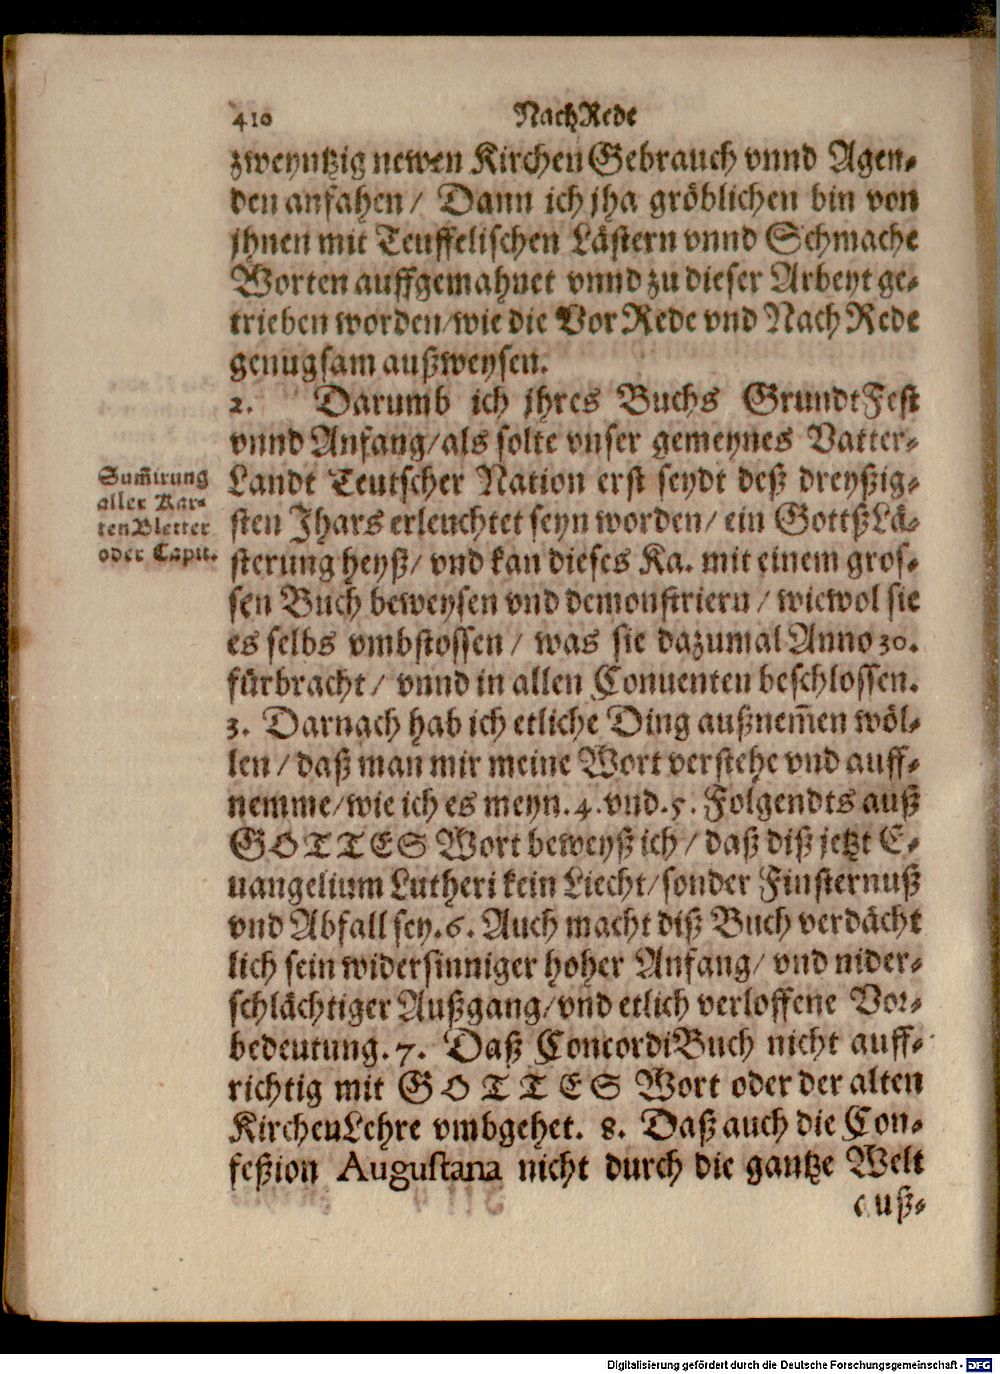 410 NachRede
zweyntzig newen Kirchen Gebrauch vnnd Agen-
den anfahen / Dann ich jha gröblichen bin von
jhnen mit Teuffelischen Lästern vnnd Schmache
Worten auffgemahnet vnnd zu dieser Arbeyt ge-
trieben worden/wie die VorRede vnd NachRede
genugsam außweysen.
2. Darumb ich jhres Buchs GrundtFest
vnnd Anfang/als solte vnser gemeynes Vatter-
Landt Teutscher Nation erst seydt deß dreyßig-
sten Jhars erleuchtet seyn worden/ ein GottßLä-
sterung heyß/ vnd kan dieses Ka. mit einem gros-
sen Buch beweysen vnd demonstriern / wiewol sie
es selbs vmbstossen / was sie dazumal Anno 30.
fürbracht/ vnnd in allen Conuenten beschlossen.
3. Darnach hab ich etliche Ding außnem̃en wöl-
len / daß man mir meine Wort verstehe vnd auff-
nemme/wie ich es meyn. 4. vnd. 5. Folgendts auß
GOTTES Wort beweyß ich / daß diß jetzt E-
uangelium Lutheri kein Liecht/sonder Finsternuß
vnd Abfall sey. 6. Auch macht diß Buch verdächt
lich sein widersinniger hoher Anfang/ vnd nider-
schlächtiger Außgang/vnd etlich verloffene Vor-
bedeutung. 7. Daß ConcordiBuch nicht auff-
richtig mit GOTTES Wort oder der alten
KirchenLehre vmbgehet. 8. Daß auch die Con-
feßion Augustana nicht durch die gantze Welt
auß-
Sum̃irung
aller Kar-
tenBletter
oder Capit.
Digitalisierung gefördert durch die Deutsche Forschungsgemeinschaft - DFG